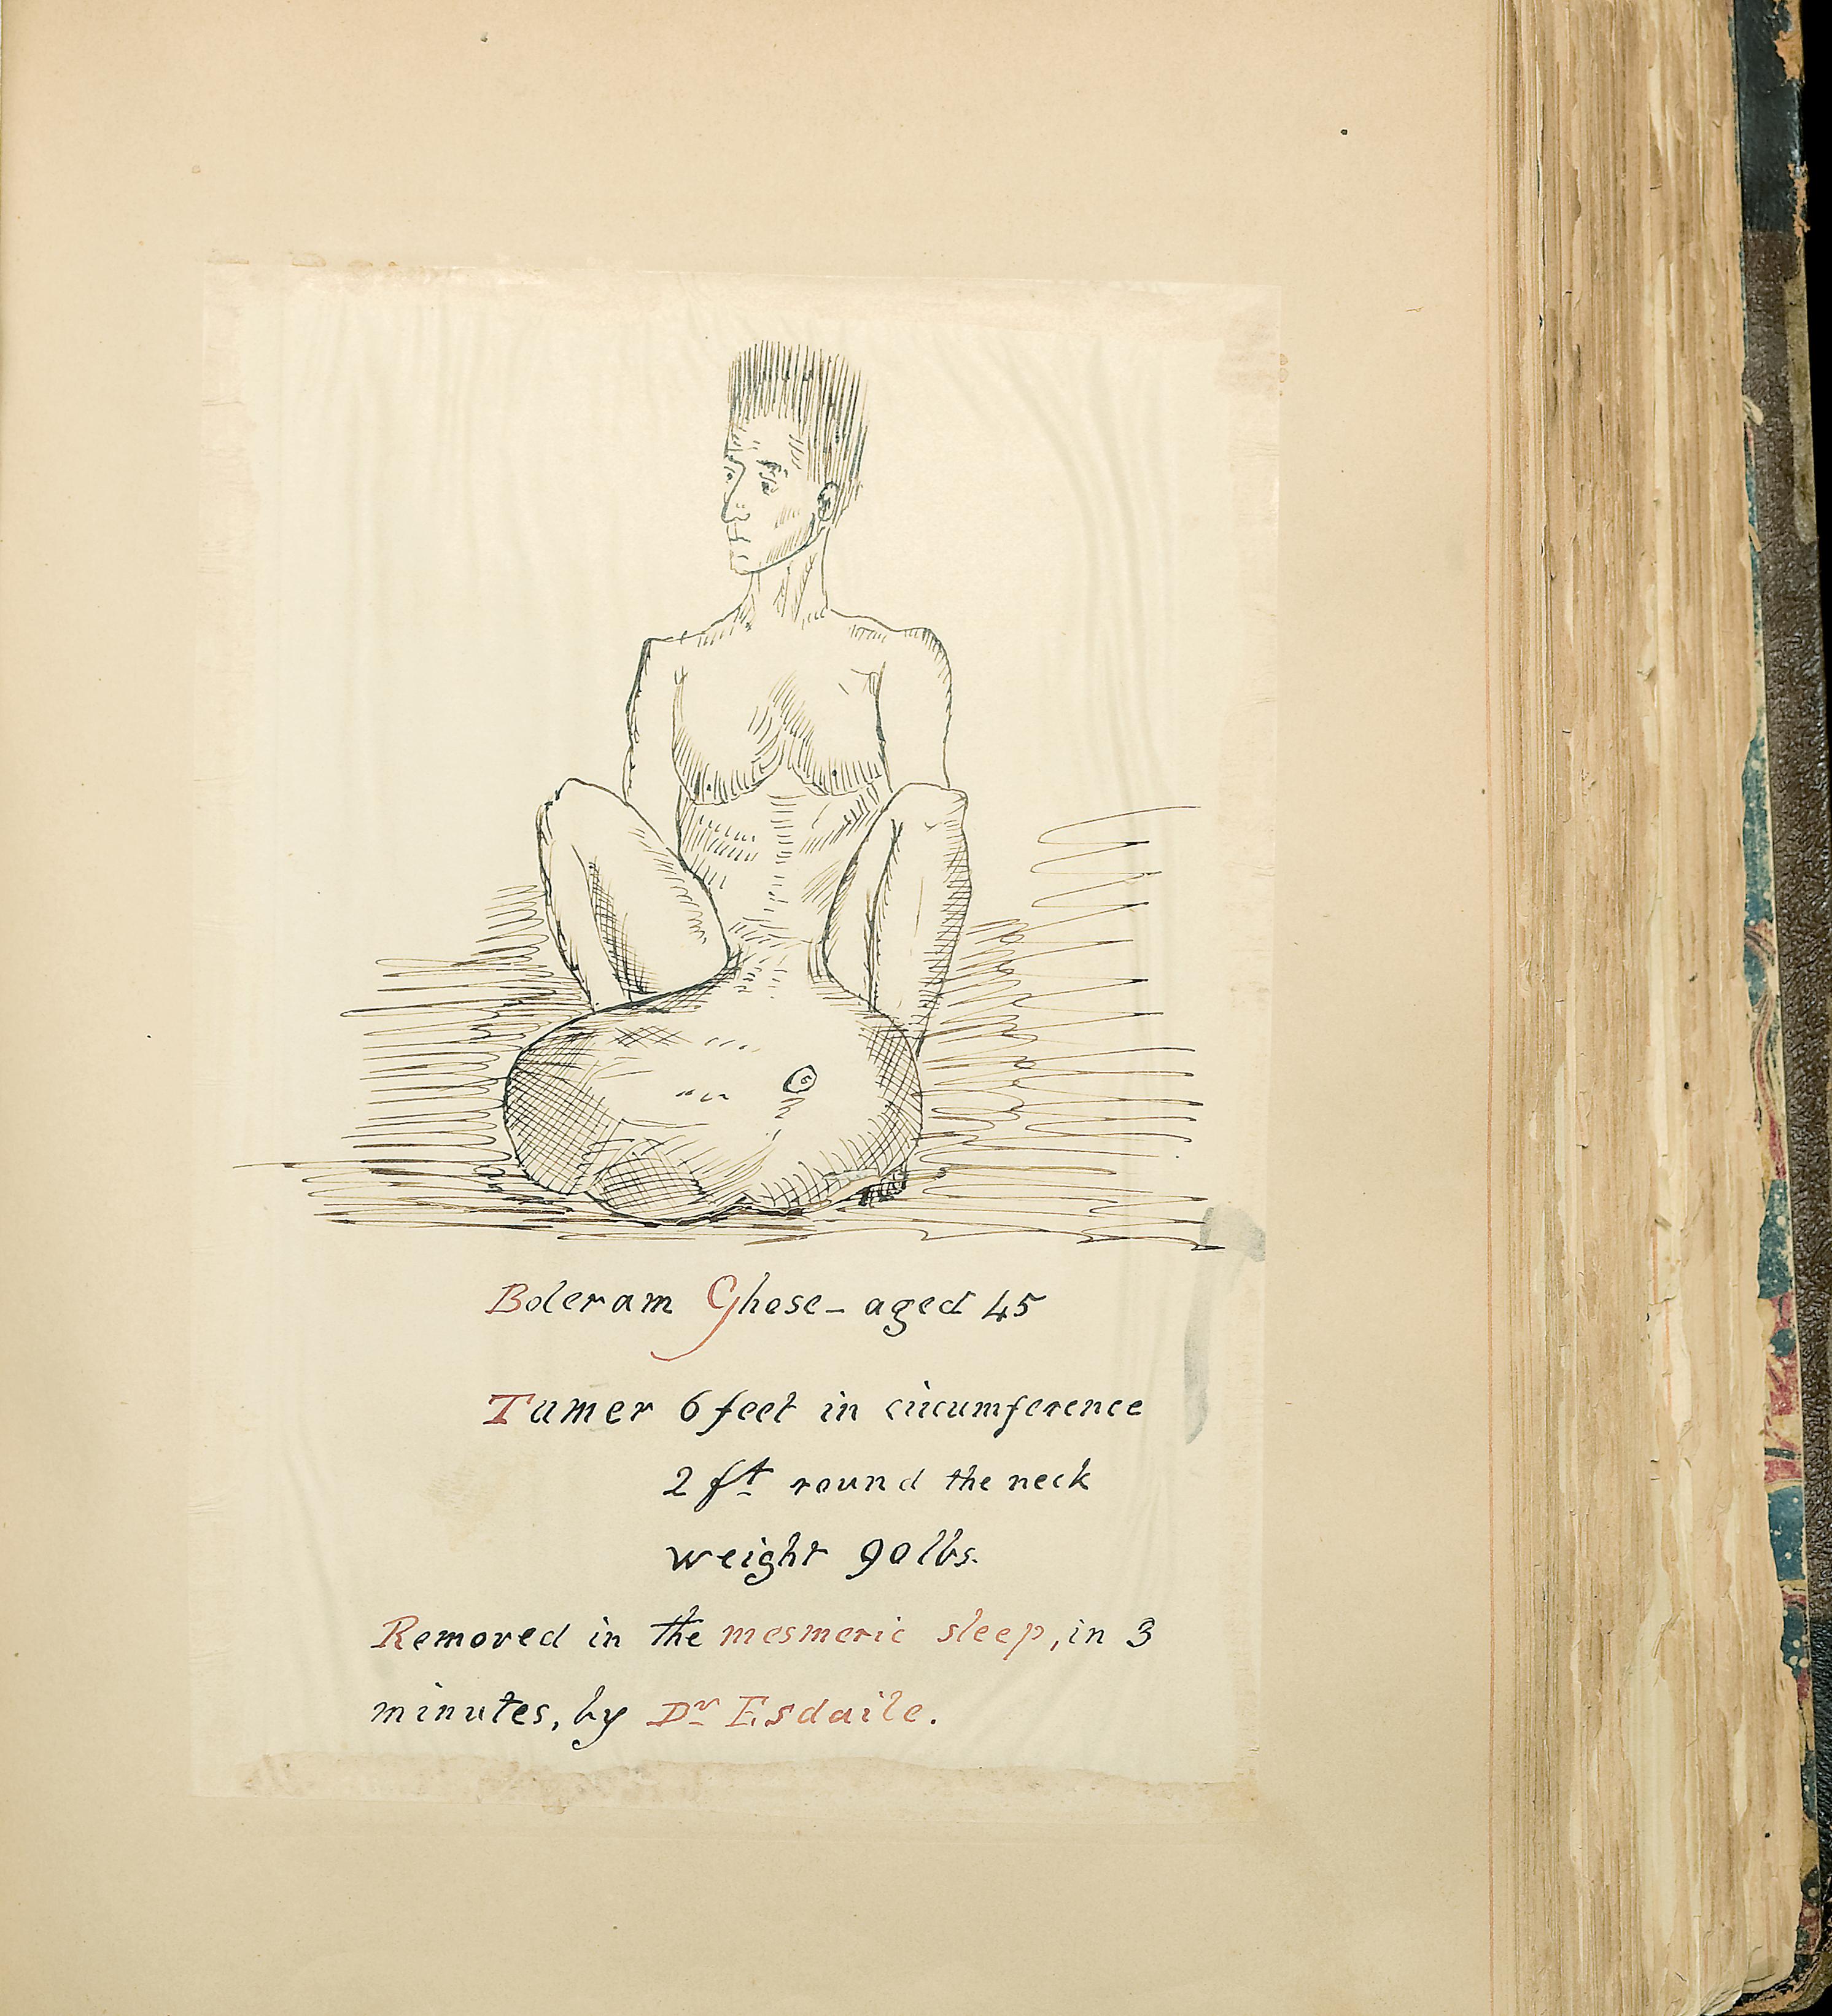 Boleram Ghose – aged 45
Tumer 6 feet in circumference
2 ft round the neck
weight 90 lbs.
Removed in the mesmeric sleep, in 3
minutes, by Dr Esdaile.